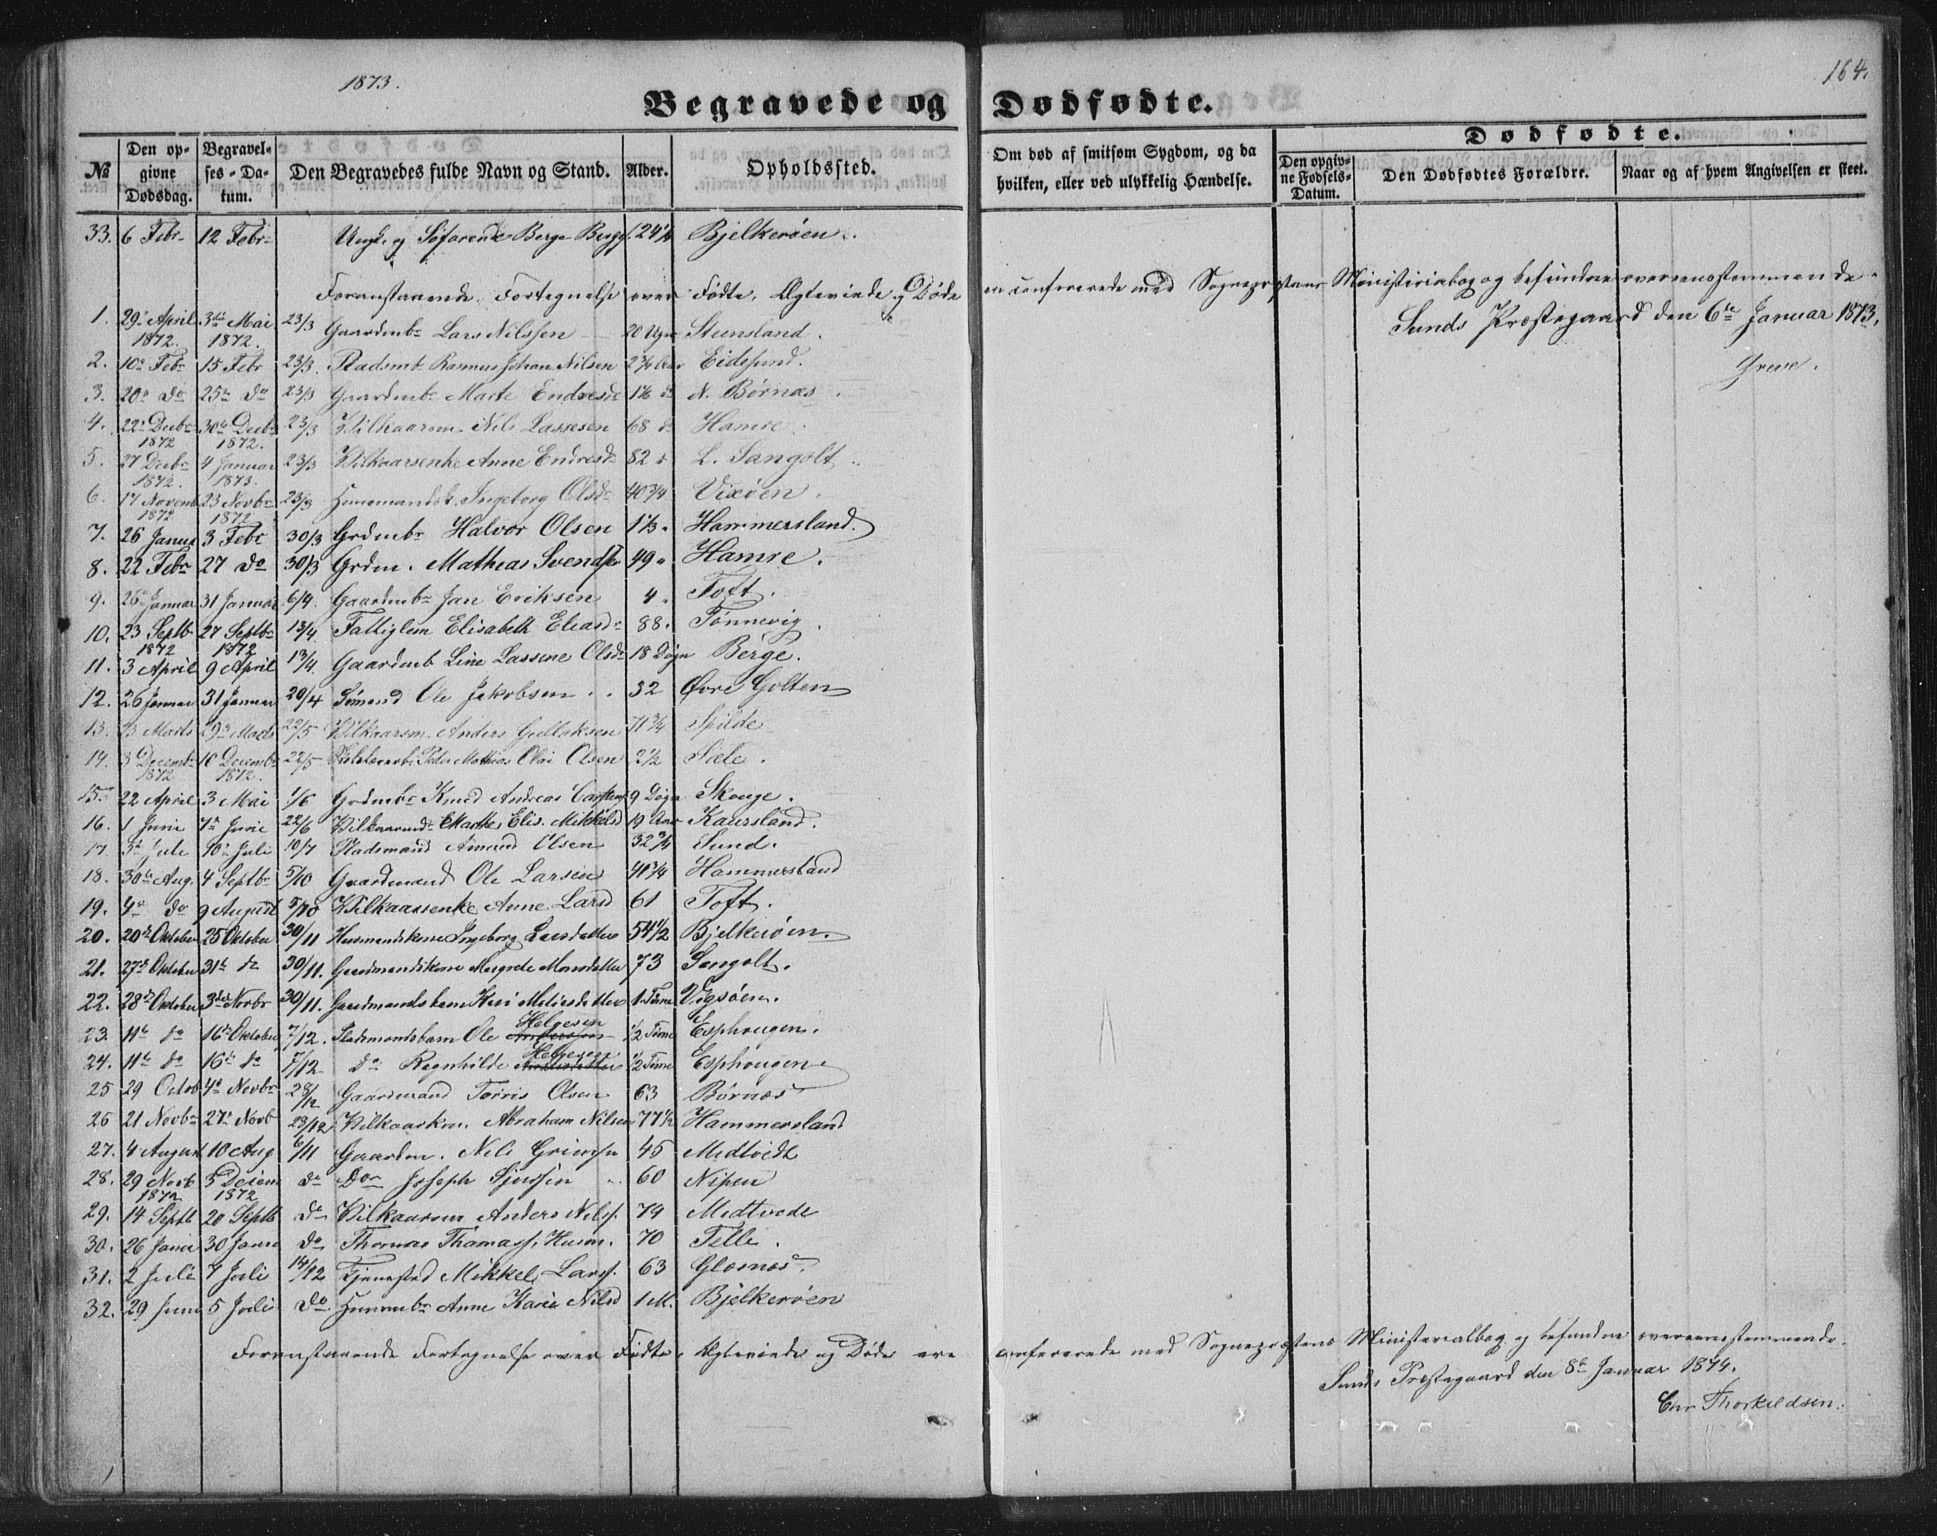 1873.
164.
Begravede og Dødfødte.
№
Den opgivne Dødsdag.
Begravelses-Datum.
Den Begravedes fulde Navn og Stand.
Alder.
Opholdssted.
Om død af smitsom Sygdom, og da hvilken, eller ved ulykkelig Hændelse.
Dødfødte.
Den opgivne Fødsels-Datum.
Den Dødfødtes Forældre.
Naar og af hvem Angivelsen er skeet.
33. 6 Febr 12 Febr Ungk. og Søfarende Berge 24 1/4 Bjelkerøen.
Foranstaaende Fortegnelse over Fødte, Ægteviede og Døde ere confererede med Sognepræstens Ministerialbog og befundne overeensstemmende.
Sunds Præstegaard den 6te Januar 1873.
1. 29 April 1872. 3die Mai 1872. 23/3 Gaardmbr Lars Nilssen 20 Uger Steensland.
2. 10de Febr 15 Febr 23/3. Pladsmb Rasmus Johan Nilsen 2 3/4 Aar Eidesund.
3. 20de do 25de do 23/3 Gaardmbr Marte Endresd N. Børnæs
4. 22de Decbr 1872 30te Decbr 1872. 23/3 Vilkaarsm. Nils Lassesen 68 Hamre.
5. 27 Decbr 1872. 4 Januar 1873. 23/3 Vilkaarsenke Anne Endresd 82 L. Sangolt
6. 17 Novemb 1872 23 Novbr 1872. 23/3 Huusmandsk. Ingeborg Olsd 40 3/4 Vixøen.
7. 26 Januar 3 Febr 30/3 Grdmbr Halvor Olsen 1 1/3 Hammersland.
8. 22 Febr 27 do 30/3 Grdm. Mathias Svends 49 Hamre.
9. 26 Januar 31 Januar 6/4. Gaardmbr Jan Eriksen 4 Toft.
10. 23 Septb 1872 27 Septbr 1872 13/4. Fattiglem Elisabeth Eliasd 88. Tønnevig.
11. 3 April 9 April 13/4. Gaardmb Line Lassine Olsd 18 Døgn Berge.
12. 26 Januar 31 Januar 20/4 Sømand Ole Jakobsen 32 Øvre Golten
13. 23 Marts 29 Marts 22/5 Vilkaarsm. Anders Gullaksen 71 3/4 Spilde
14. 3 Decembr 1872 10 Decembr 1872. 22/5 Peder Mathias Olai Olsen 2 1/2 Sæle.
15. 22 April 3 Mai 1/6 Grdmbr Knud Andreas 9 Døgn Skouge.
16. 1 Juni 7de Juni 22/6 Marthe Elis. Mikkelsd 19 Aar Kaursland.
17. 3 Juli 10 Juli 10/7 Pladsmand Amund Olsen 32 3/4 Sund.
18. 30te Aug. 4 Septbr 5/10 Gaardmand Ole Larsen 41 3/4 Hammersland
19. 4de do 9 August 5/10 Vilkaarsenke Anne Larsd 61 Toft.
20. 20de Oktober 25 Oktober 30/11 Husmandskone Ingeborg Larsdatter 54 1/2 Bjelkerøen.
21. 27de Oktober 31te do 30/11. Gaardmandskone Margrete Monsdatter 73 Sangolt.
22. 28de Oktober 3die Novbr 30/11. Gaardmandsbarn Kari Matiesdatter 1 Time Vixøen.
23. 11te do 16de Oktober 7/12. Pladsmandsbarn Ole Helgesen 1/2 Time Esphougen.
24. 11te do 16de do 7/12 do Regnhilde 1/2 Time Esphougen
25 29 Octob 4de Novbr 28/12 Gaardmand Torris Olsen 63 Børnæs
26 21 Novbr 27de Novb 29/12 Abraham Nilsen 77 1/2 Hammersland
27. 4 August 10 Aug 6/11 Gaardm. Nils 45 Midtvedt
28. 29 Novb 1872 5 1872 do Joseph 60 Nipen
29. 14 Septb 20 Septb do Vilkaarsm Anders Nilss. 74 Midtvede
30. 26 30 do Thomas Thomass. Husm. 70 Telle.
31. 2 Juli 7 Juli 14/12 Mikkel Larss. 63 Glesnæs.
32. 29 Juni 5 Juli do Husmbr Anne Karie Nilsd 1 M. Bjelkerøen
Foranstaaende Fortegnelse over Fødte, Ægteviede og Døde ere confererede med Sognepræstens Ministerialbog og befundne overeensstemmende.
Sunds Præstegaard den 8de Januar 1874.
Chr Thorkildsen.